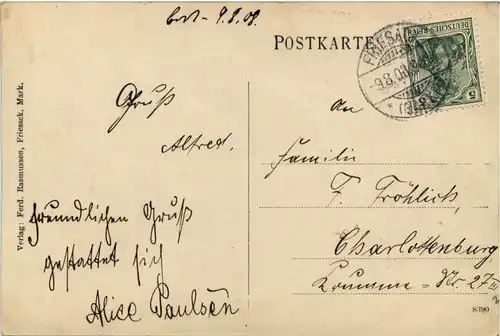 9.8.09.
POSTKARTE
DEUTSCHES REICH
5
FRIESACK
9.8.09
Verlag: Ferd. Rasmussen, Friesack, Mark.
Gruß
Alfred.
freundlichen Gruß
gestattet sich
Alice Paulsen
An
Familie
F. Fröhlich,
Charlottenburg,
Krumme-Str. 27 III
8390